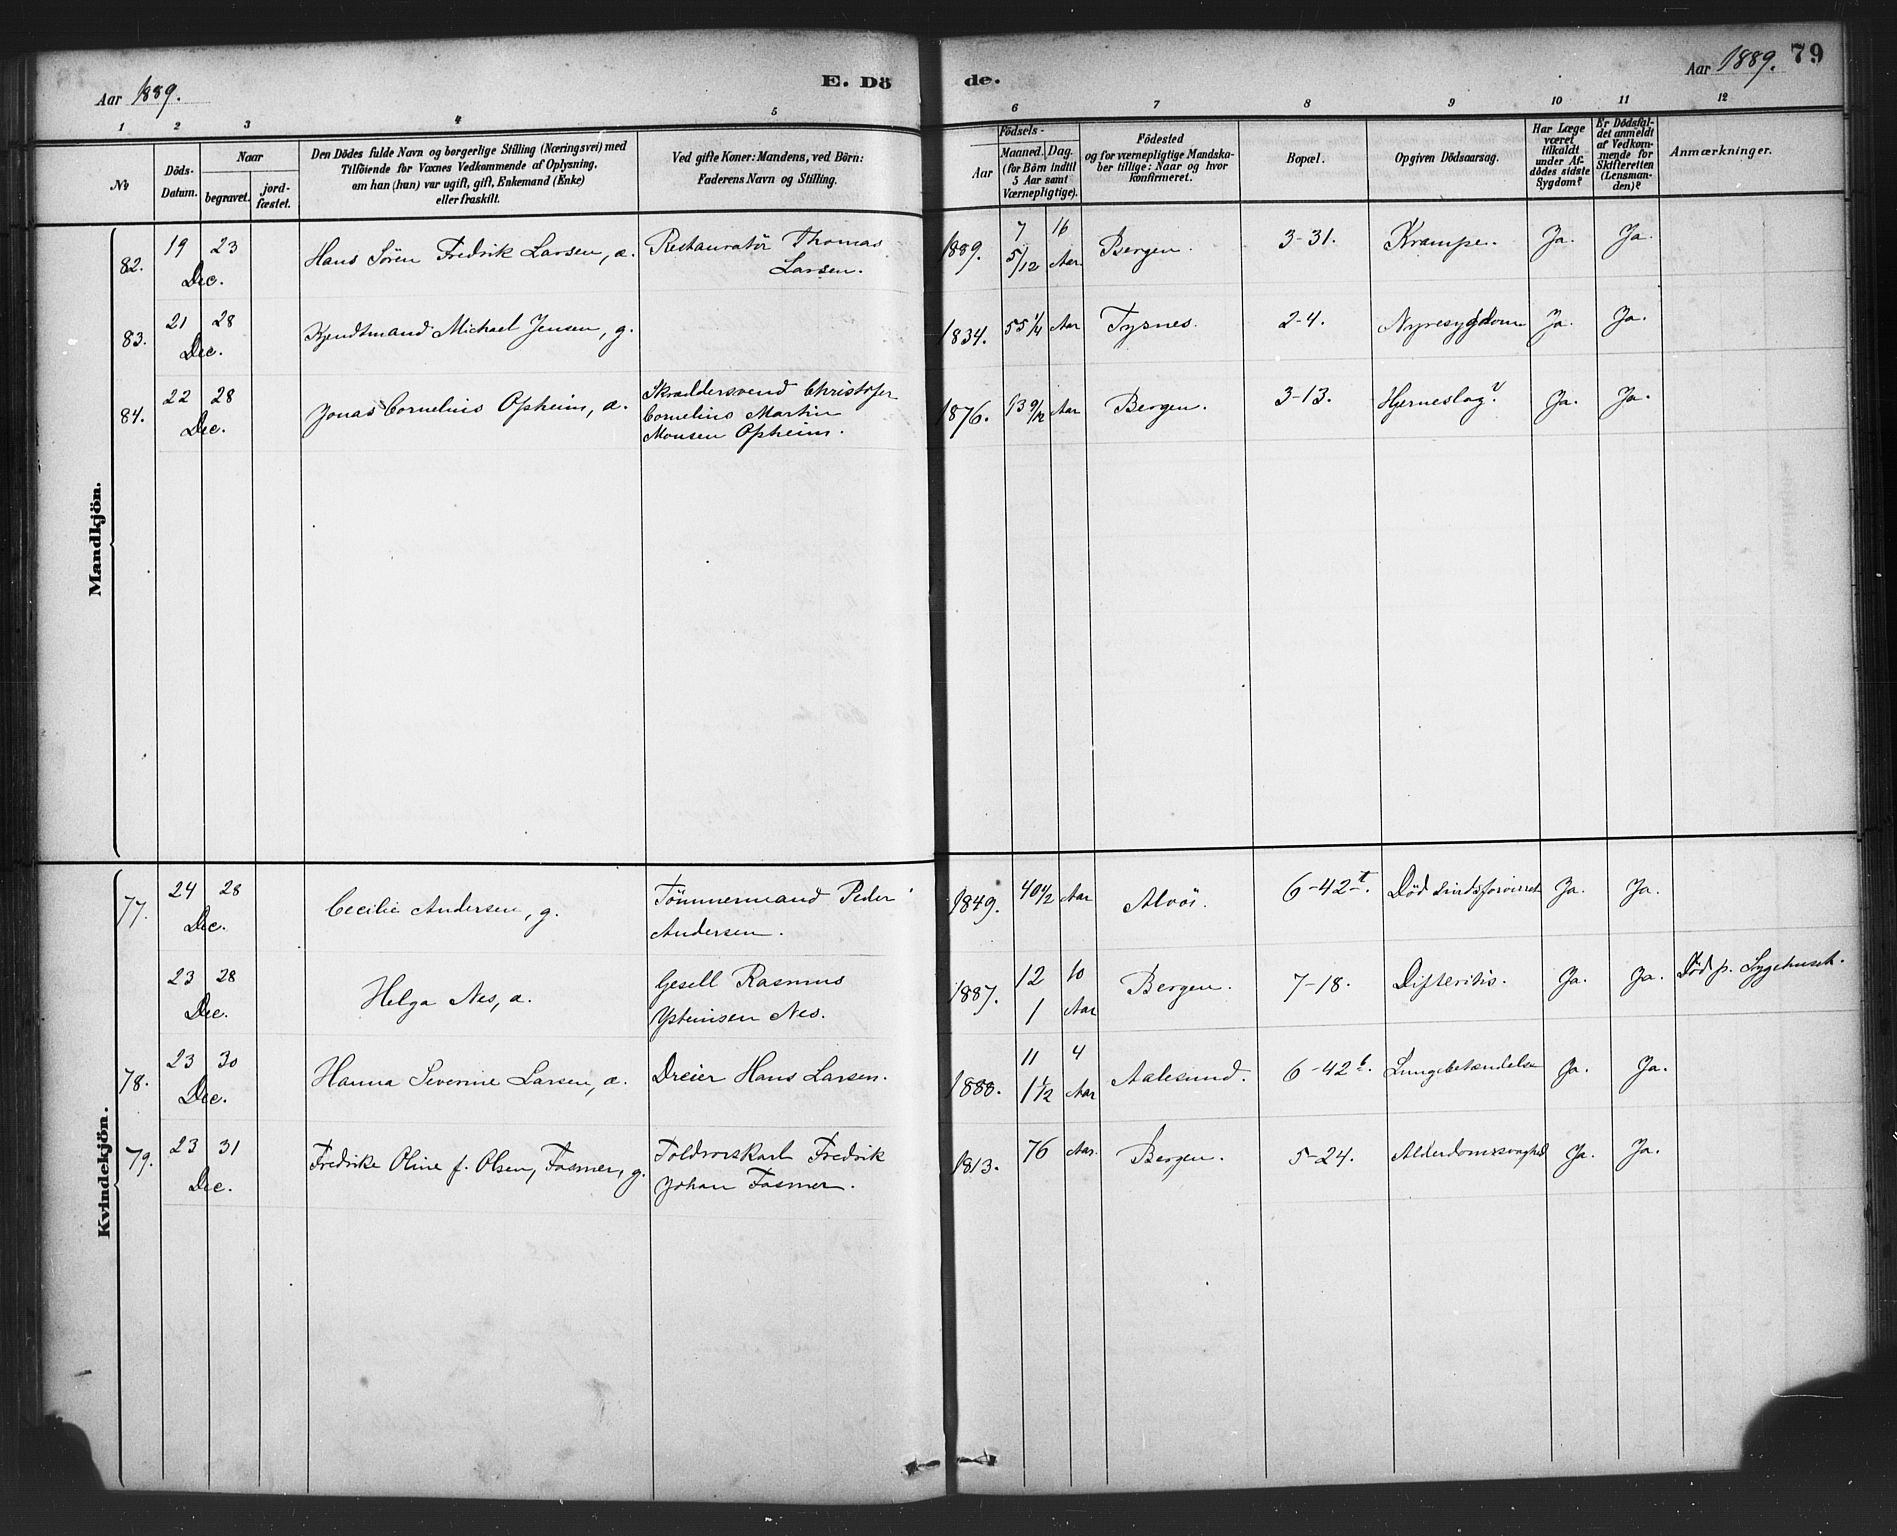 Aar 1889.
E. Dö
de.
Aar 1889. 79
1 2 3 4 5
6 7 8 9 10 11 12
No
Döds-
Datum.
Naar
begravet.
jord-
fæstet.
Den Dödes fulde Navn og borgerlige Stilling (Næringsvei) med
Tilföiende for Voxnes Vedkommende af Oplysning,
om han (hun) var ugift, gift, Enkemand (Enke)
eller fraskilt.
Ved gifte Koner: Mandens, ved Börn:
Faderens Navn og Stilling.
Födsels-
Aar
Maaned. Dag.
(for Börn indtil
5 Aar samt
Værnepligtige).
Födested
og for værnepligtige Mandska-
ber tillige: Naar og hvor
konfirmeret.
Bopæl.
Opgiven Dödsaarsag.
Har Læge
været
tilkaldt
under Af-
dödes sidste
Sygdom?
Er Dödsfal-
det anmeldt
af Vedkom-
mende for
Skifteretten
(Lensman-
den)?
Anmærkninger.
Mandkjön.
82. 19 23 Dec. Hans Sören Fredrik Larsen, a. Restauratör Thomas
Larsen.
1889. 7 16 5/12 Aar Bergen. 3-31. Krampe. Ja. Ja.
83. 21 28 Dec. Michael Jensen, g.
1834. 55 1/4 Aar Tysnes. 2-4. Nyresygdom Ja. Ja.
84. 22 28 Dec. Jonas Cornelius Opheim, a. Skræddersvend Christofer
Cornelius Martin
Monsen Opheim.
1876. 13 9/12 Aar Bergen. 3-13. Hjerneslag? Ja. Ja.
Kvindekjön.
77. 24 28 Dec. Cecilie Andersen, g. Tömmermand Peder
Andersen.
1849. 40 1/2 Aar Alvöi. 6-42 Död sindsforvirret Ja. Ja.
23 28 Dec. Helga Nes, a. Gesell Rasmus
Nes.
1887. 12 10 1 Aar Bergen. 7-18. Difteritis. Ja. Ja. Död p. Sygehuset.
78. 23 30 Dec. Hanna Severine Larsen, a. Dreier Hans Larsen.
1888. 11 4 1 1/2 Aar Aalesund. 6-42 b. Lungebetændelse Ja. Ja.
79. 23 31 Dec. Fredrike Oline f. Olsen, Fasmer, g. Fredrik
Johan Fasmer.
1813. 76 Aar. Bergen. 5-24. Alderdomssvaghed Ja. Ja.